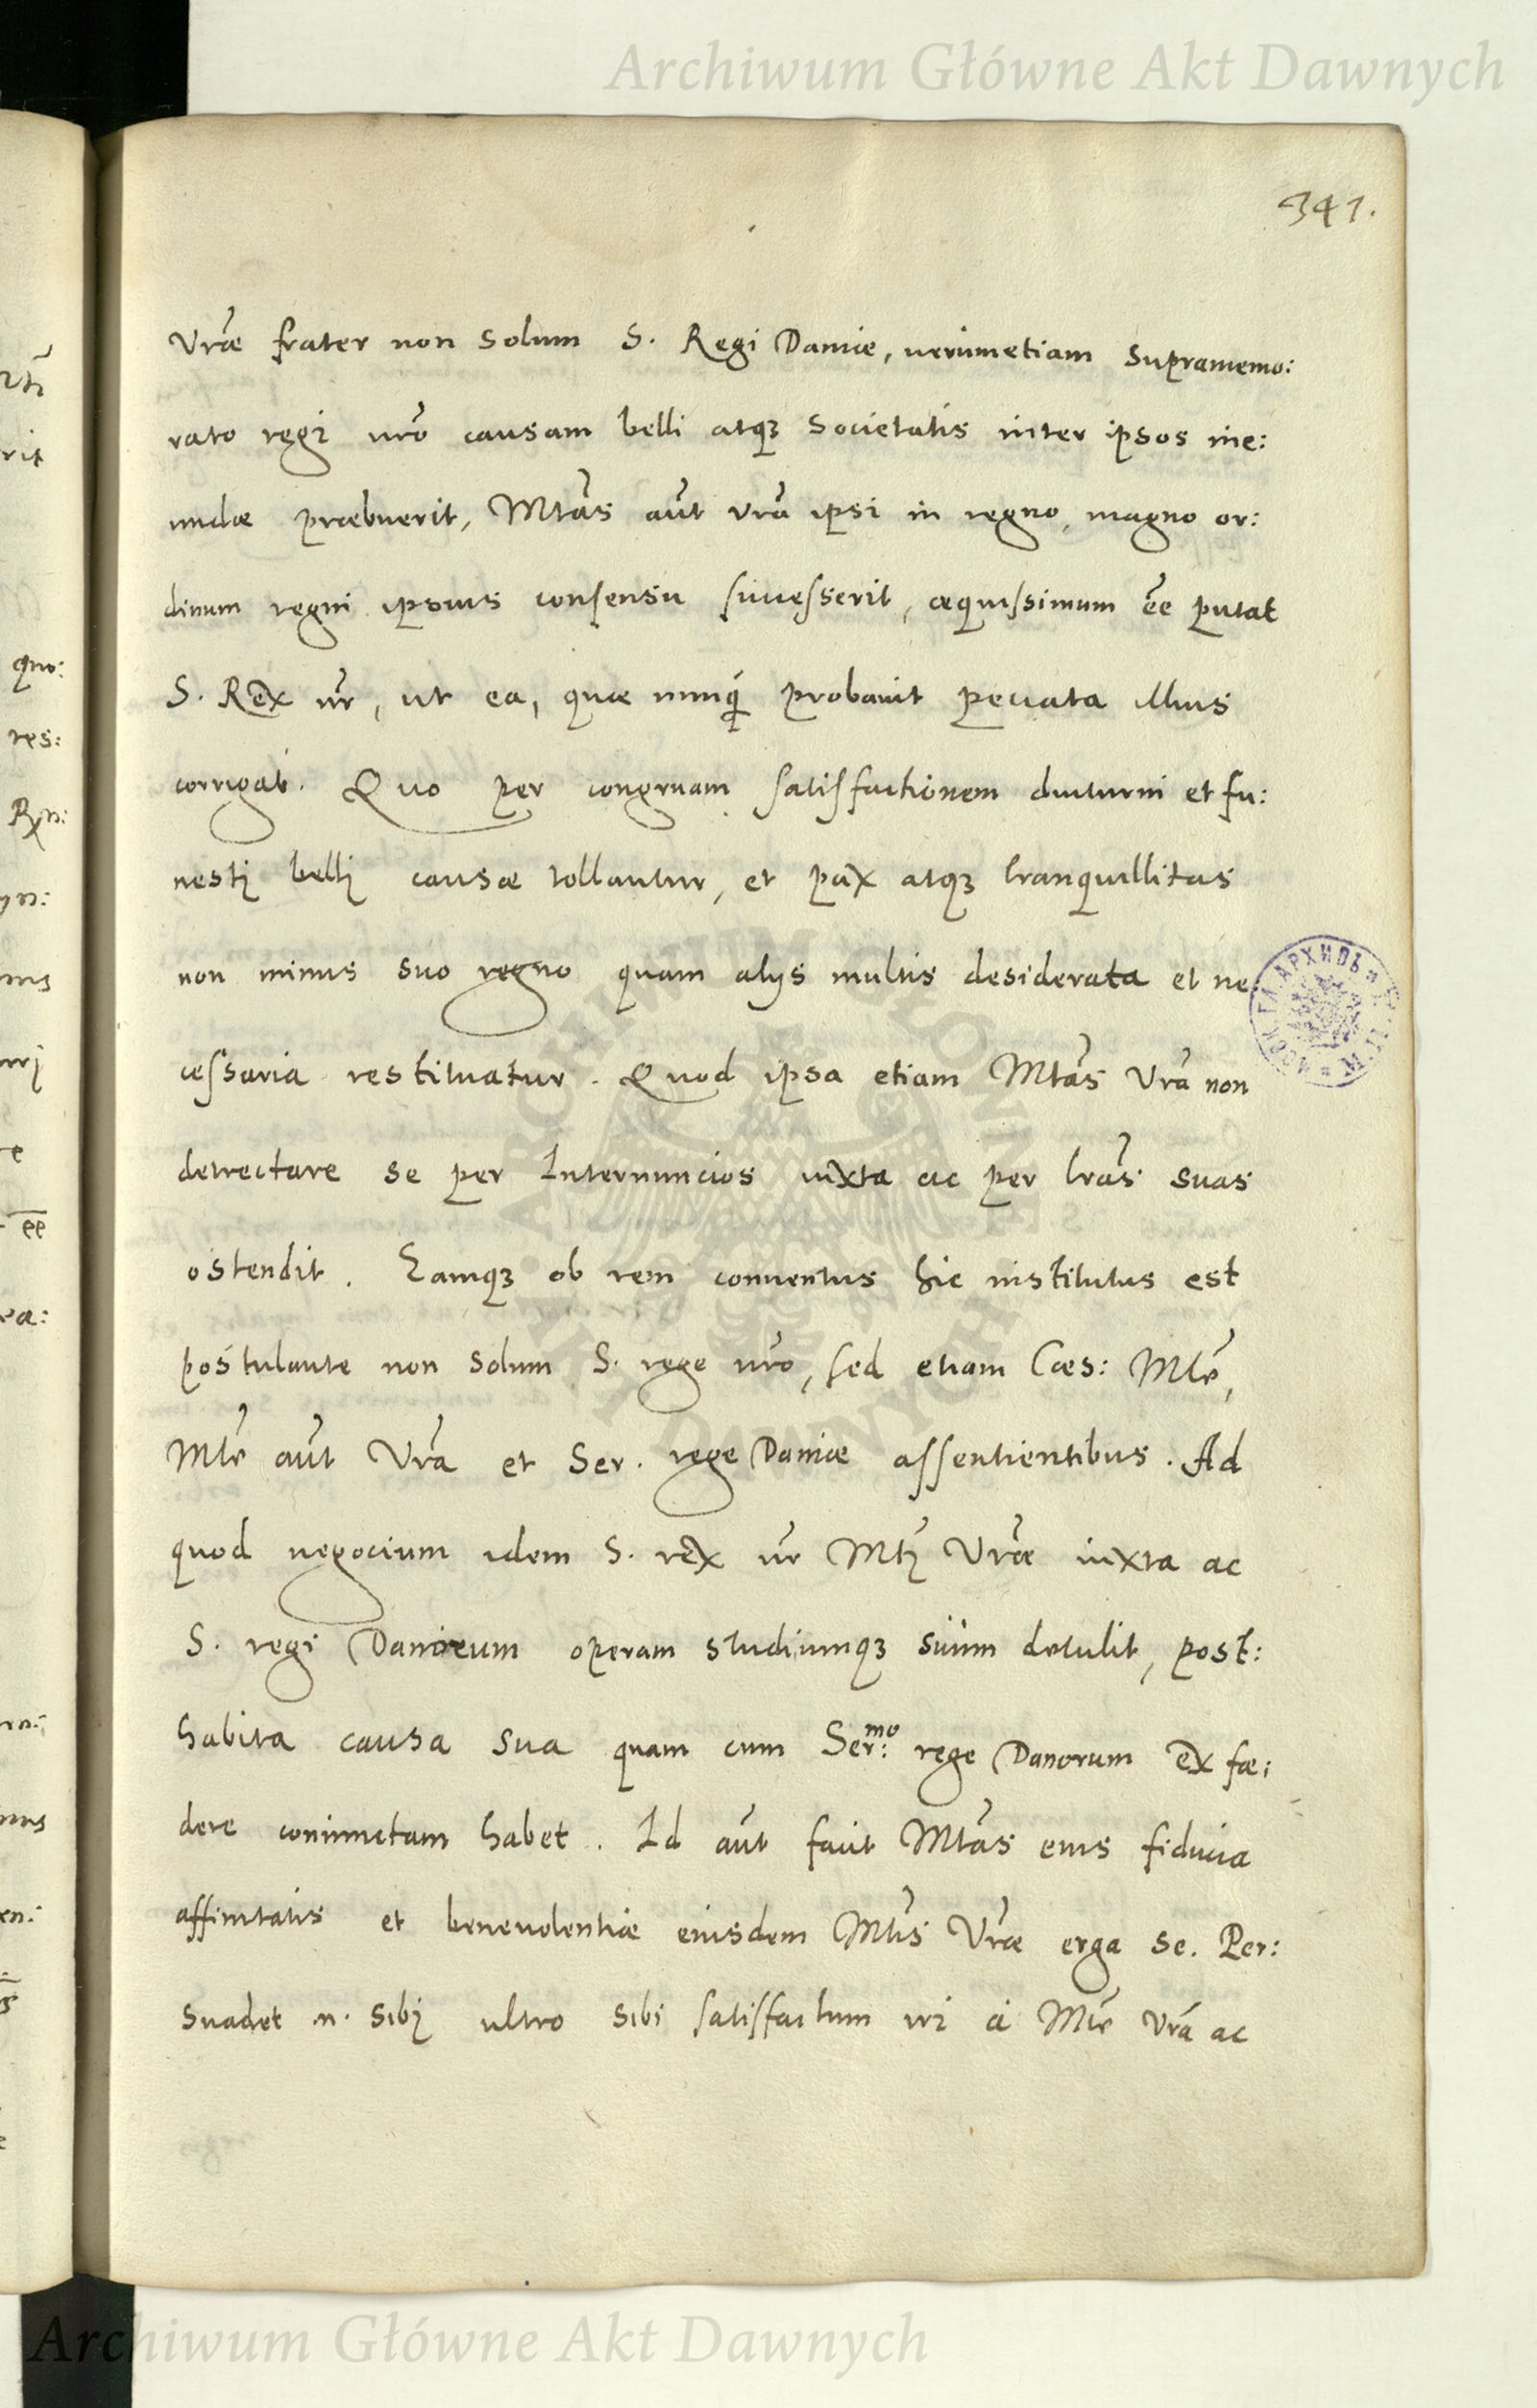 Archiwum Główne Akt Dawnych
341.
Vrãe frater non solum S. Regi Daniæ, uerumetiam supramemo:
rato regi nrõ causam belli atqꝫ societatis inter ipsos ine:
undæ præbuerit, Mtãs aũt vrã ipsi in regno, magno or:
dinum regni ipsius consensu successerit, æquissimum ẽe putat
S. Rex nr̃, ut ea, quæ nunq̃ probauit peccata illius
corrigat. Quo per congruam satisfactionem diuturni et fu:
nesti belli causæ tollantur, et pax atqꝫ tranquillitas
non minus suo regno quam alijs multis desiderata et ne
cessaria restituatur. Quod ipsa etiam Mtãs Vrã non
detrectare se per Internuncios iuxta ac per lrãs suas
ostendit. Eamqꝫ ob rem conuentus hic institutus est
postulante non solum S. rege nrõ, sed etiam Cæs: Mtẽ,
Mtẽ aũt Vrã et Ser. rege Daniæ assentientibus. Ad
quod negocium idem S. rex nr̃ Mtĩ Vrãe iuxta ac
S. regi operam studiumqꝫ suum detulit, post:
habita causa sua quam cum Ser:mo rege Danorum ex fœ:
dere coniunctam habet. Id aũt facit Mtãs eius fiducia
affinitatis et beneuolentiæ eiusdem Mtĩs Vrãe erga se. Per:
suadet n. sibi ultro sibi satisfactum iri à Mtẽ Vrã ac
Archiwum Główne Akt Dawnych